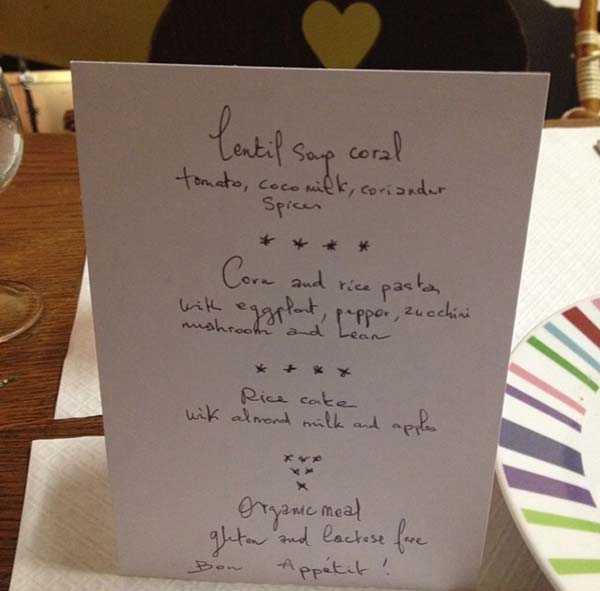 Lentil Soup coral
tomato, coco milk, coriander
Spices
* * * *
Corn and rice pasta
with eggplant, pepper, zucchini
mushroom and bean
* * * *
Rice cake
with almond milk and apples
* * *
* *
*
Organic meal
gluten and lactose free
Bon Appétit !